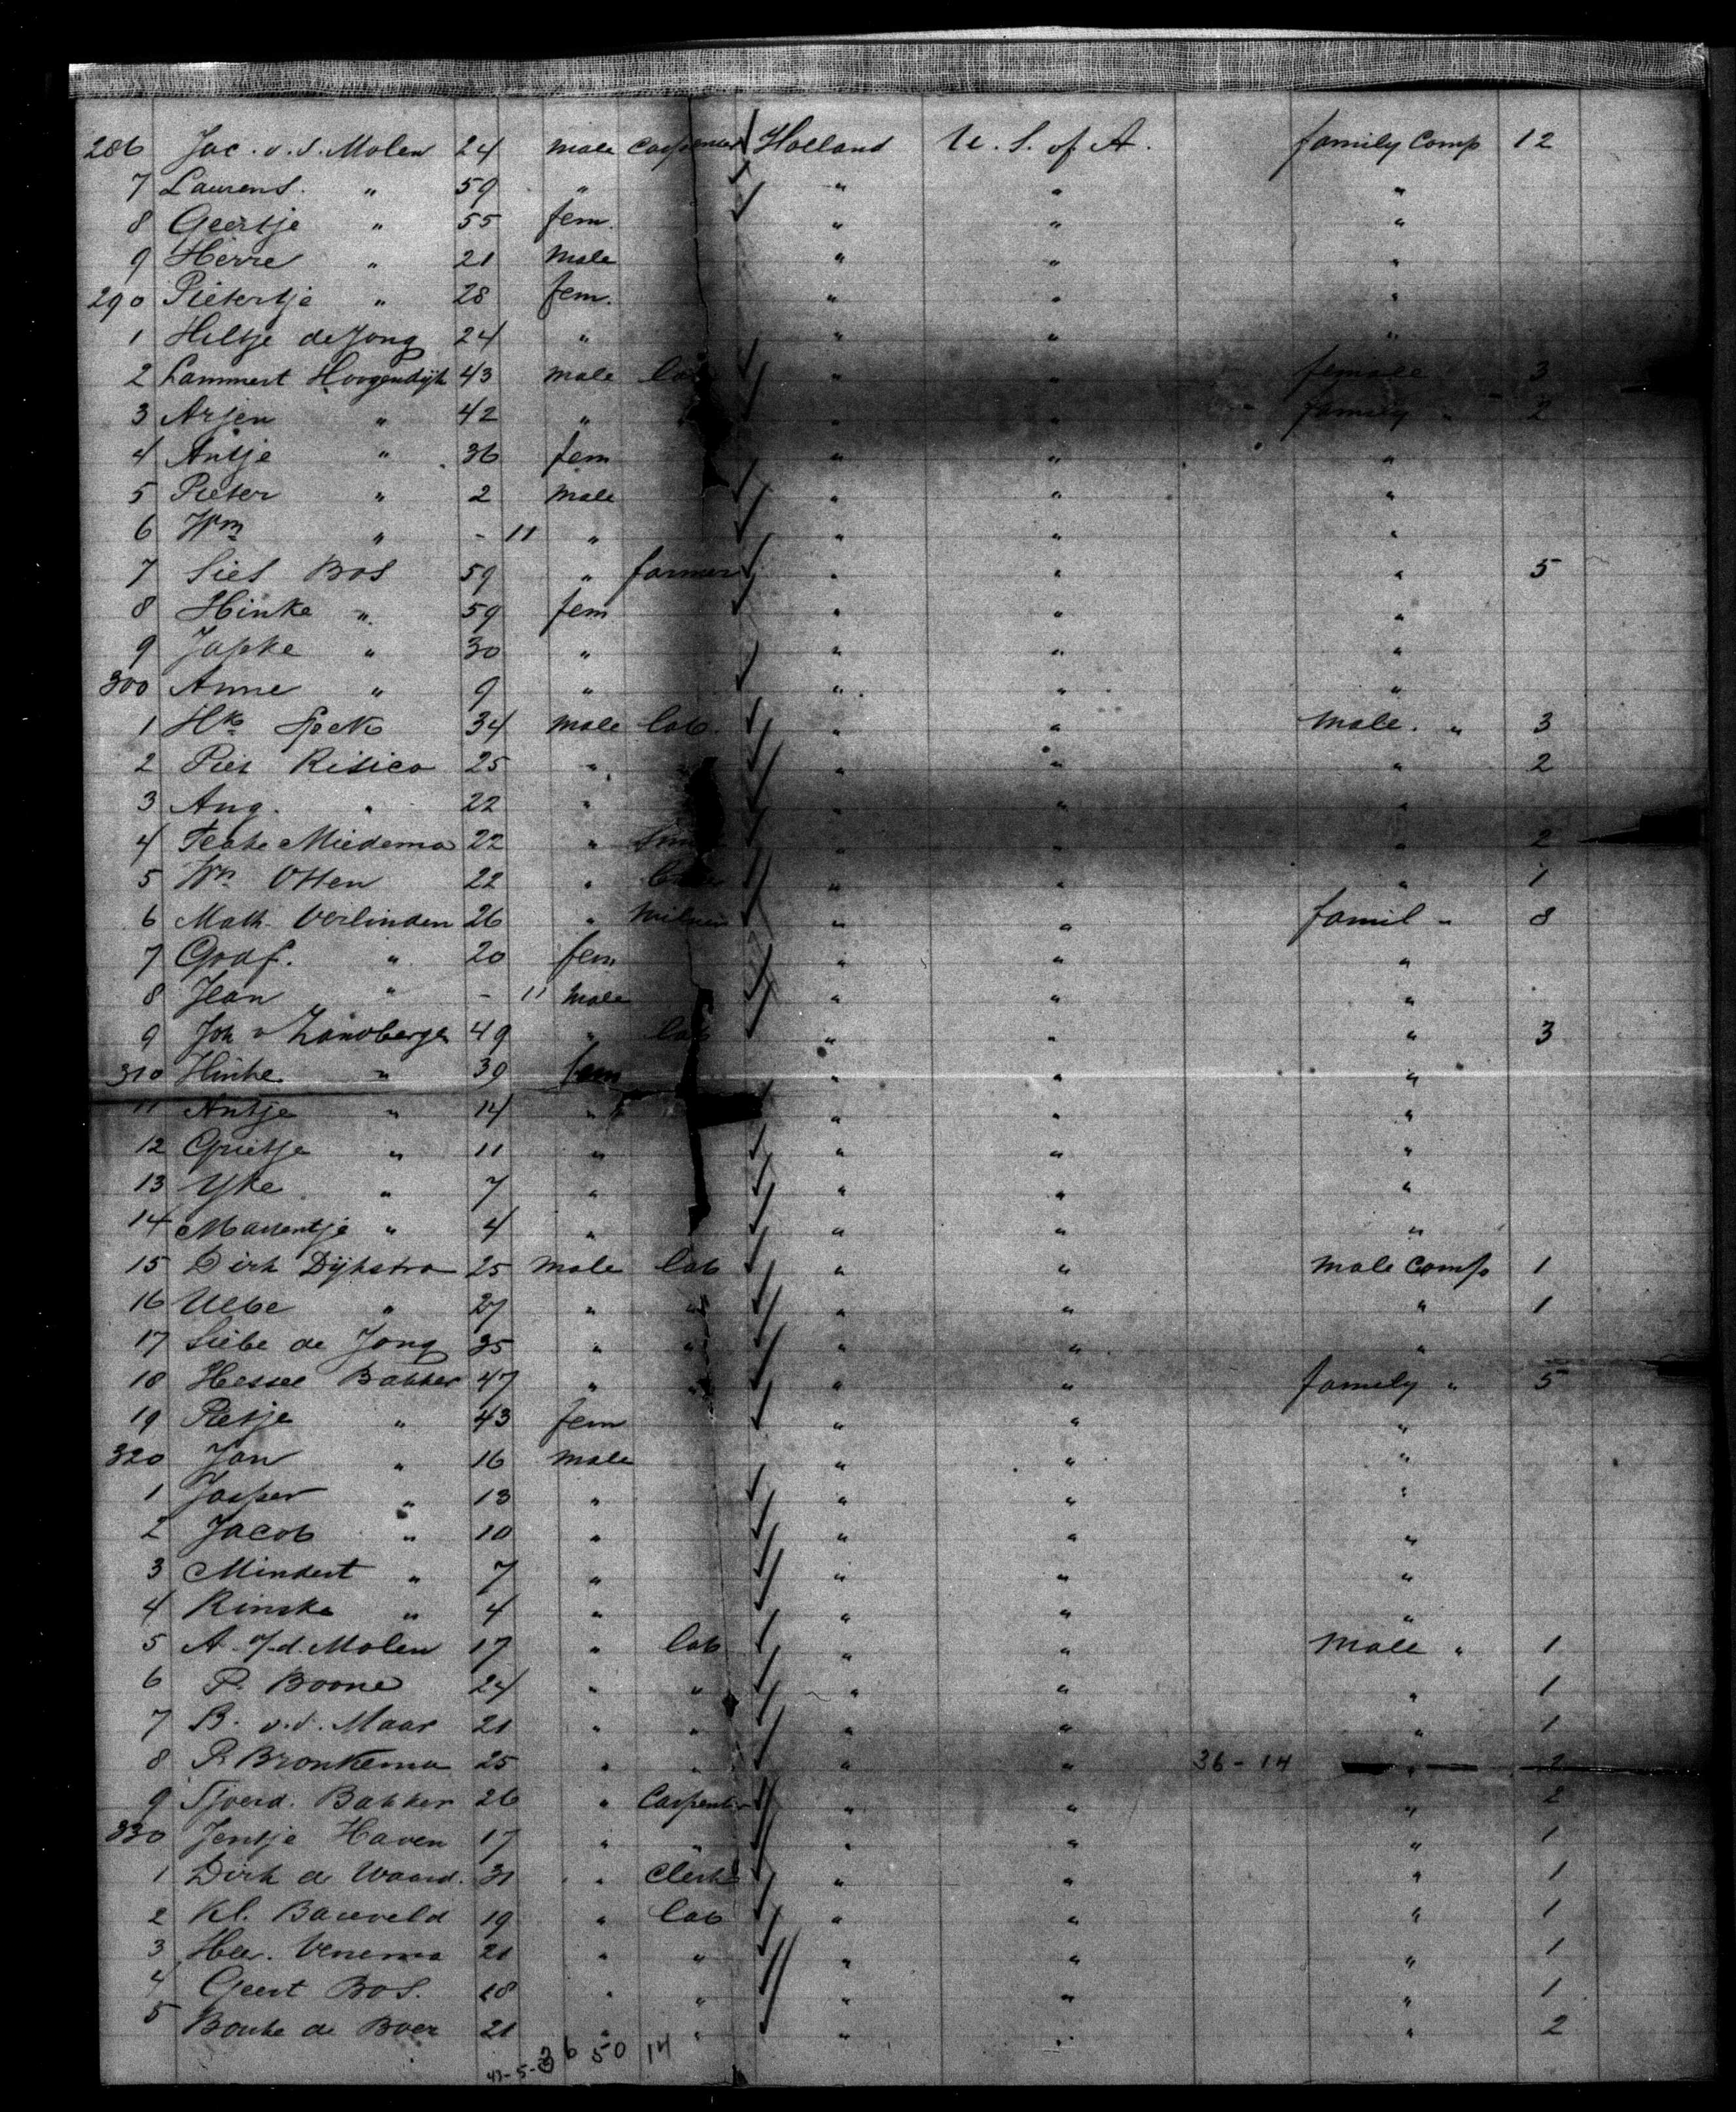 286 Jac. v. d. Molen 24 male Carpenter Holland U. S. of A. family Comp 12
7 Laurens " 59 " " " "
8 Geertje " 55 fem. " " "
9 Herre " 21 male " " "
290 Pietertje " 28 fem. " " "
1 Hiltje de Jong 24 " " " "
2 Lammert Hoogendijk 43 male " " female 3
3 Arjen " 42 " " " family " 2
4 Antje " 36 fem " " "
5 Pieter " 2 male " " "
6 Wm " - 11 " " " "
7 Siet Bos 59 " farmer " " " 5
8 Hinke " 59 fem " " "
9 Japke " 30 " " " "
300 Anne " 9 " " " "
1 Hk Spek 34 male lab. " " male. " 3
2 Piet Risico 25 " " " " 2
3 Aug. " 22 " " " "
4 Miedema 22 " " " " 2
5 Wm Otten 22 " " " " 1
6 Math. Verlinden 26 " " " famil " 8
7 Godf. " 20 fem " " "
8 Jean " - 11 male " " "
9 Joh v Zandberge 49 " lab " " " 3
310 Hinke " 39 fem " " "
11 Antje " 14 " " " "
12 Grietje " 11 " " " "
13 Yke " 7 " " " "
14 " 4 " " " "
15 Dirk Dijkstra 25 male lab " " male Comp 1
16 Uebe " 27 " " " " " 1
17 Siebe de Jong 35 " " " " "
18 Hessel Bakker 47 " " " " family " 5
19 Pietje " 43 fem " " "
320 Jan " 16 male " " "
1 Jasper " 13 " " " "
2 Jacob " 10 " " " "
3 Mindert " 7 " " " "
4 Rinske " 4 " " " "
5 A. v. d. Molen 17 " lab " " male " 1
6 P. Boone 24 " " " " " 1
7 B. v. d. Maar 21 " " " " " 1
8 P. Bronkema 25 " " " " 36-14 " 2
9 Sjoerd. Bakker 26 " Carpenter " " " 2
330 Jentje Haven 17 " " " " " 1
1 Dirk de Waard. 31 " Clerk " " " 1
2 Kl. Bareveld 19 " lab " " " 1
3 Her. Venema 21 " " " " " 1
4 Geert Bos. 18 " " " " " 1
5 Bouke de Boer 21 " " " " " 2
36 50 14